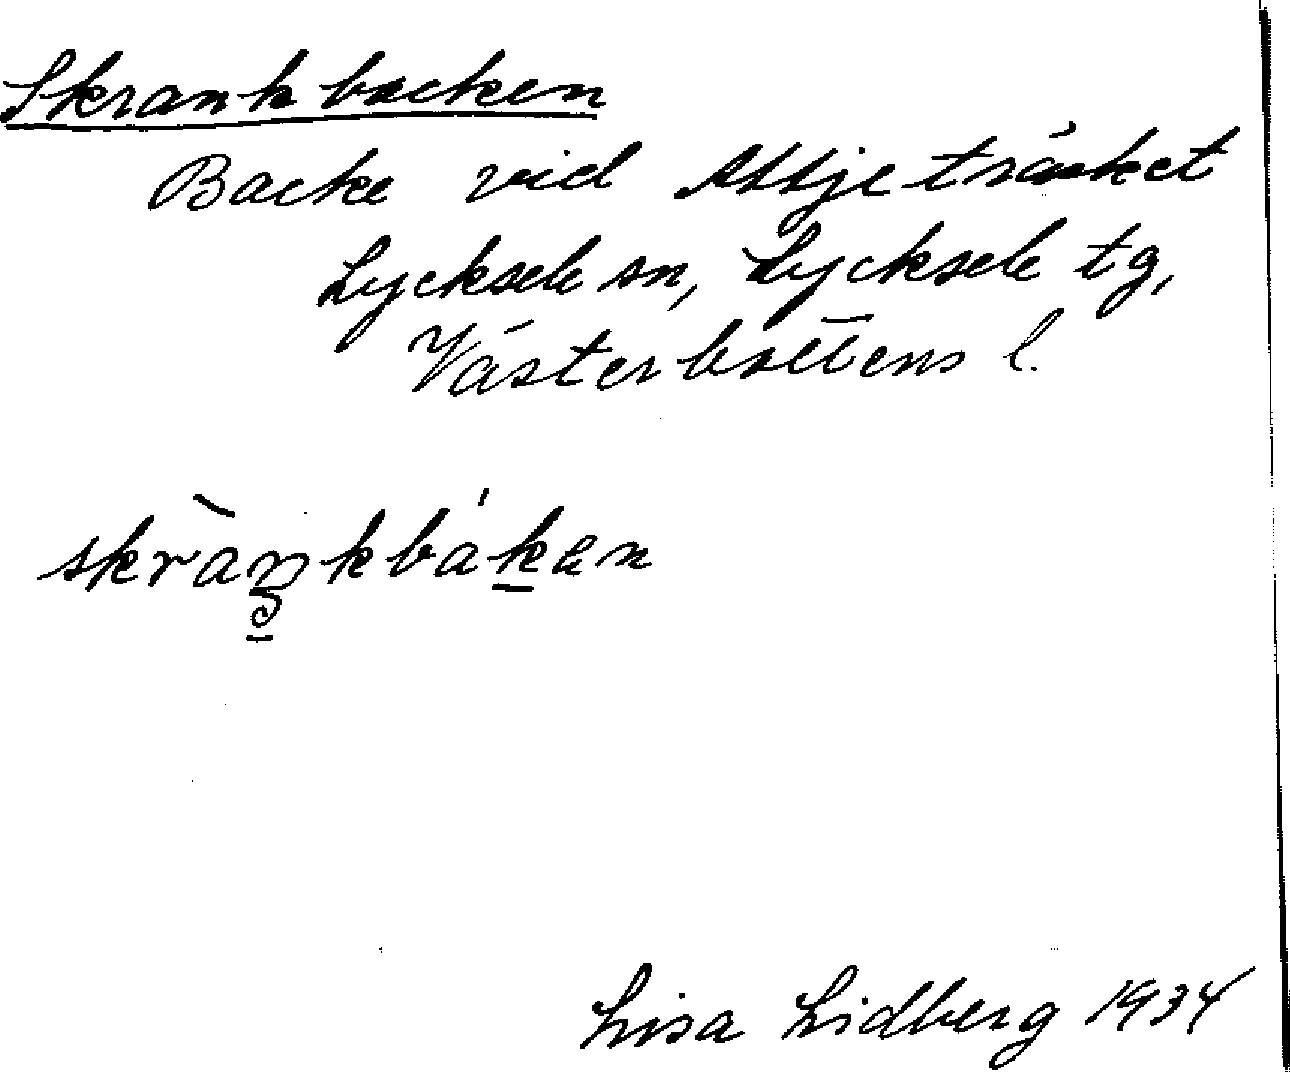 Skrankbacken
Backe vid Attjeträsket
Lycksele sn, Lycksele tg,
Västerbottens l.
skràŋkbákɐn
Lisa Lidberg 1934